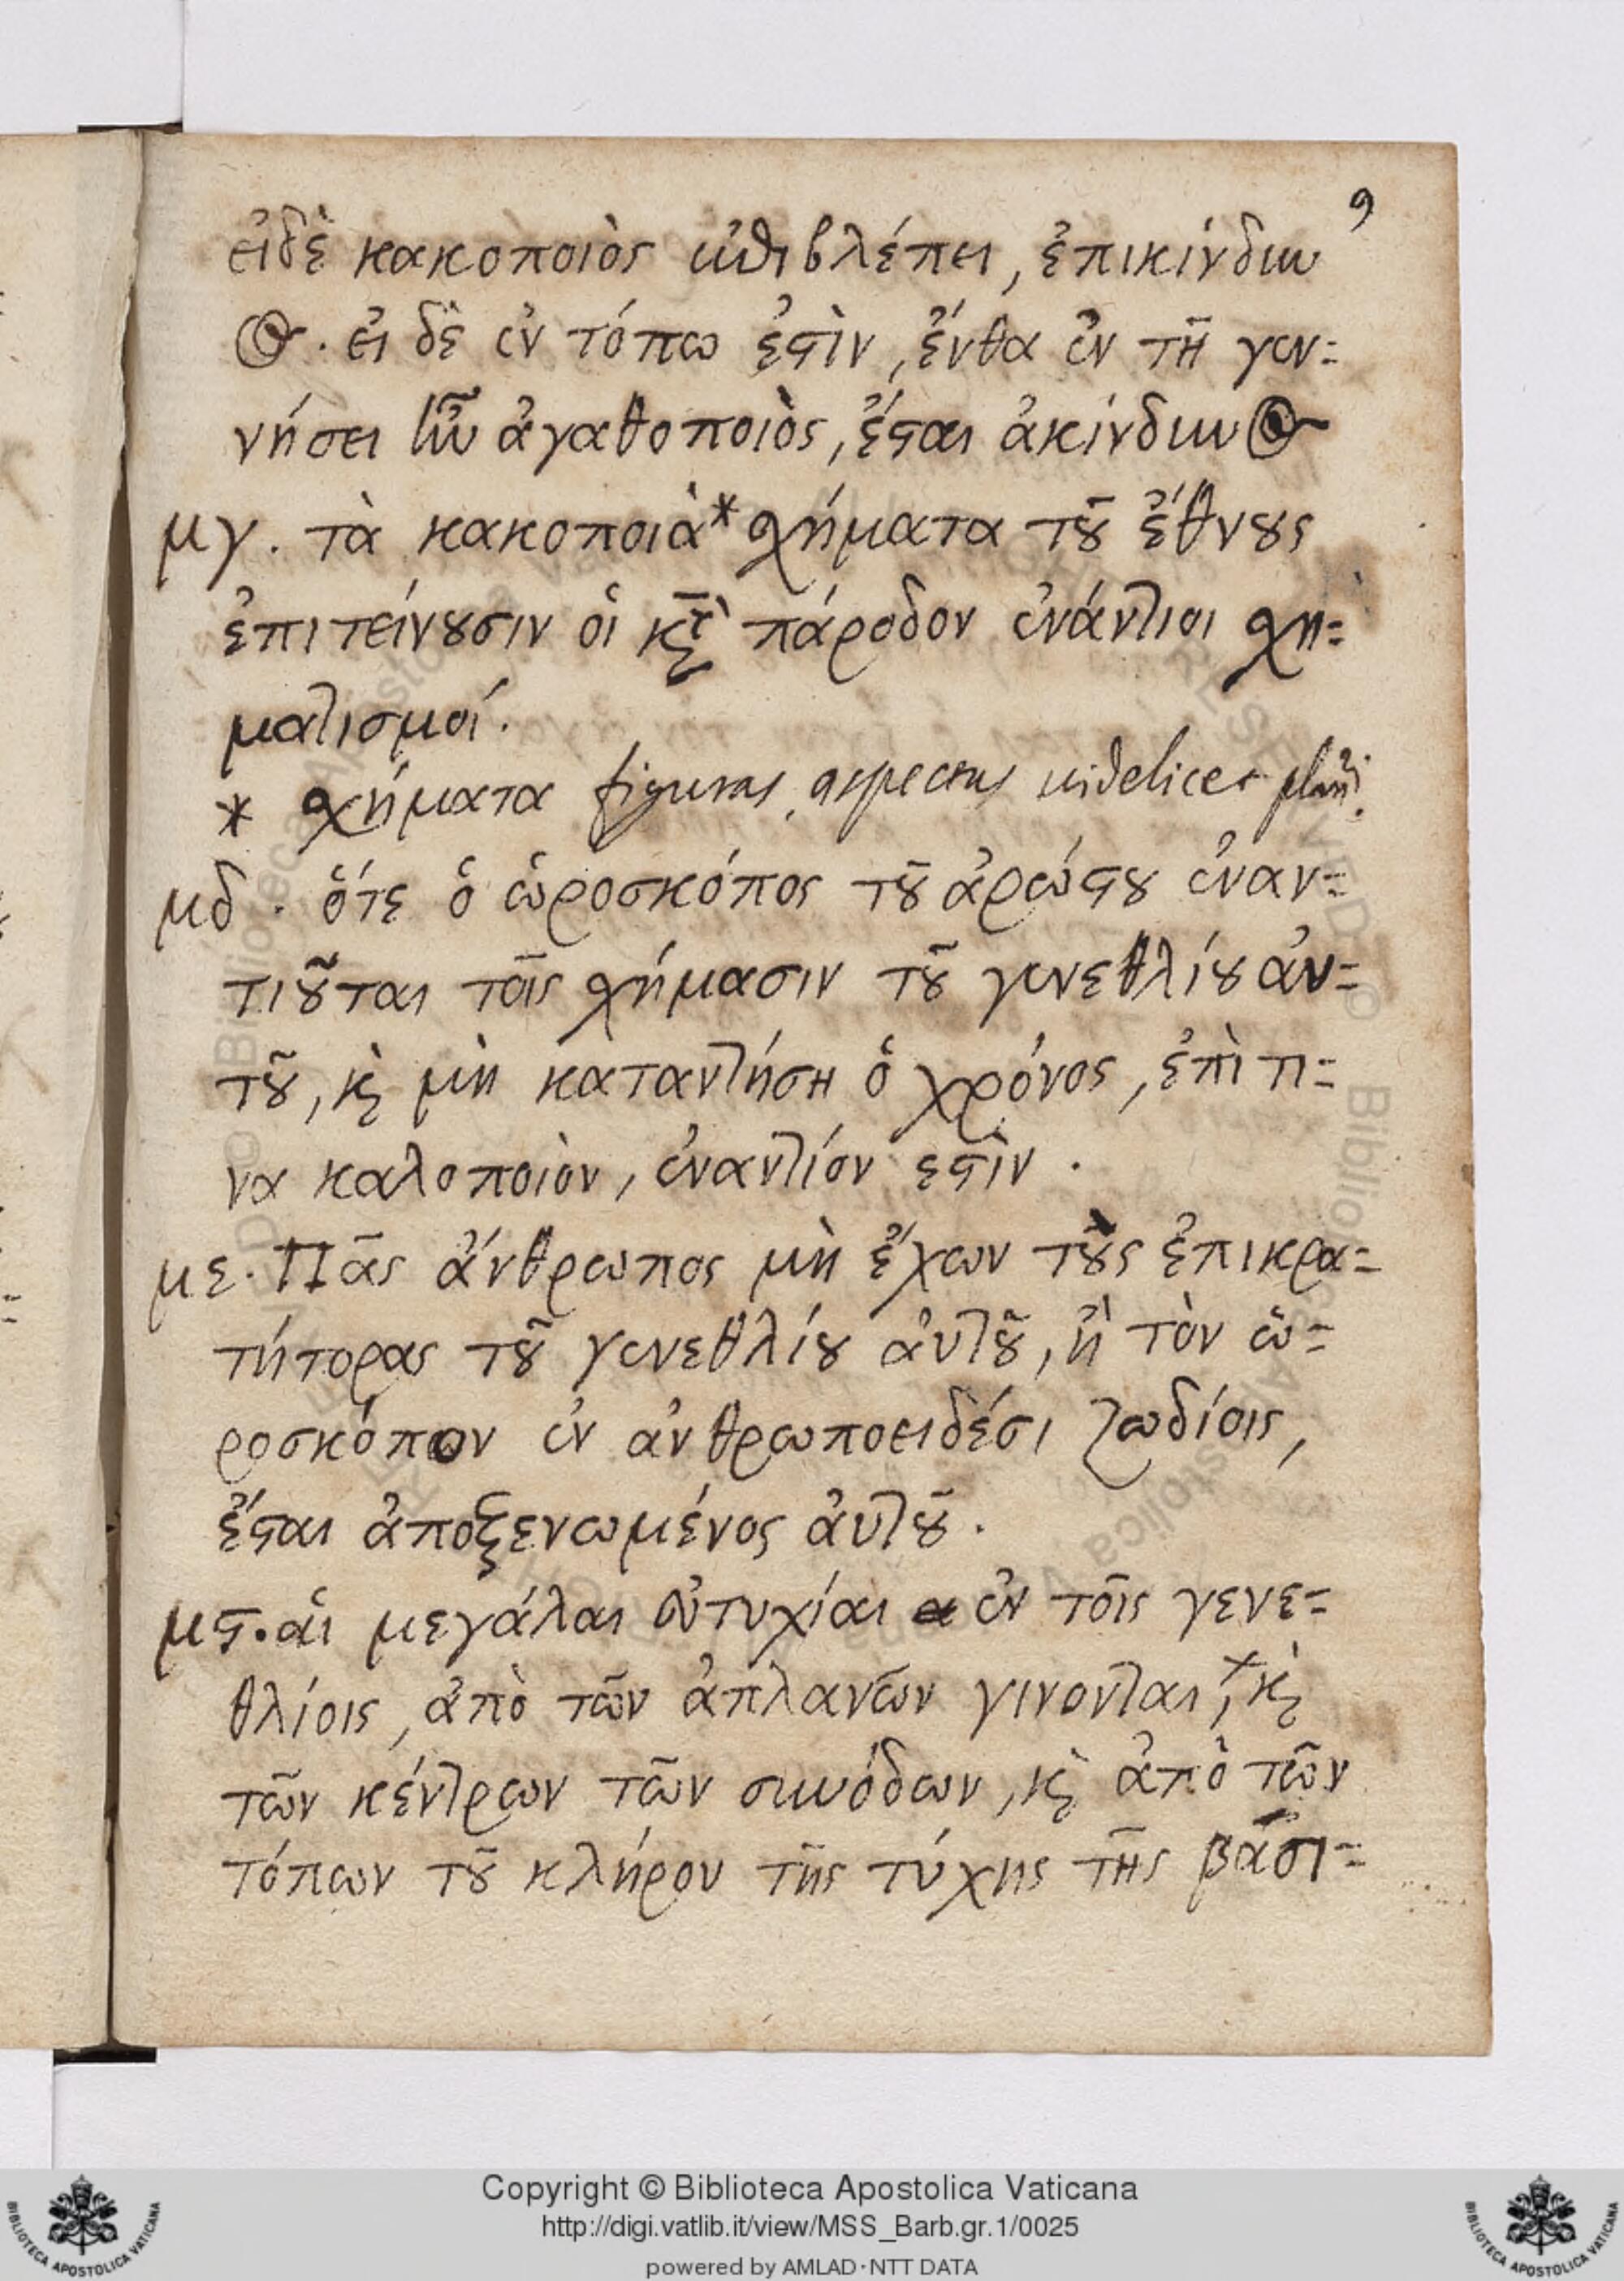 9
εἰδὲ κακοποιὸς ἐπιβλέπει, ἐπικίνδυν
ος. εἰ δὲ ἐν τόπω ἐστὶν, ἔνθα ἐν τῆ γεν=
νήσει ἦν ἀγαθοποιὸς, ἔσται ἀκίνδυνος
μγ. τὰ κακοποιὰ* σχήματα τοῦ ἔθνους
ἐπιτείνουσιν οἱ κατὰ πάροδον ἐνάντιοι σχη=
ματισμοί.
* σχήματα figuras, aspectus videlicet
μδ. ὅτε ὁ ὡροσκόπος τοῦ ἀρώστου ἐναν=
τιοῦται τοῖς σχήμασιν τοῦ γενεθλίου ἀυ=
τοῦ, κὶ μὴ καταντήση ὁ χρόνος, ἐπὶ τι=
να καλοποιὸν, ἐναντίόν εστὶν.
με. Πᾶς ἄνθρωπος μὴ ἔχων τοὺς ἐπικρα=
τήτορας τοῦ γενεθλίου ἀυτοῦ, ἢ τὸν ὡ=
ροσκόπον ἐν ἀνθρωποειδέσι ζωδίοις,
ἔσται ἀποξενωμένος ἀυτοῦ.
μς. ἁι μεγάλαι ἐυτυχίαι ἐν τοῖς γενε=
θλίοις, ἀπὸ τῶν ἀπλανῶν γινονται, κὶ
τῶν κέντρων τῶν συνόδων, κὶ ἀπὸ τῶν
τόπων τοῦ κλήρου τῆς τύχης τῆς βασι=
Copyright © Biblioteca Apostolica Vaticana
http://digi.vatlib.it/view/MSS_Barb.gr.1/0025
powered by AMLAD·NTT DATA